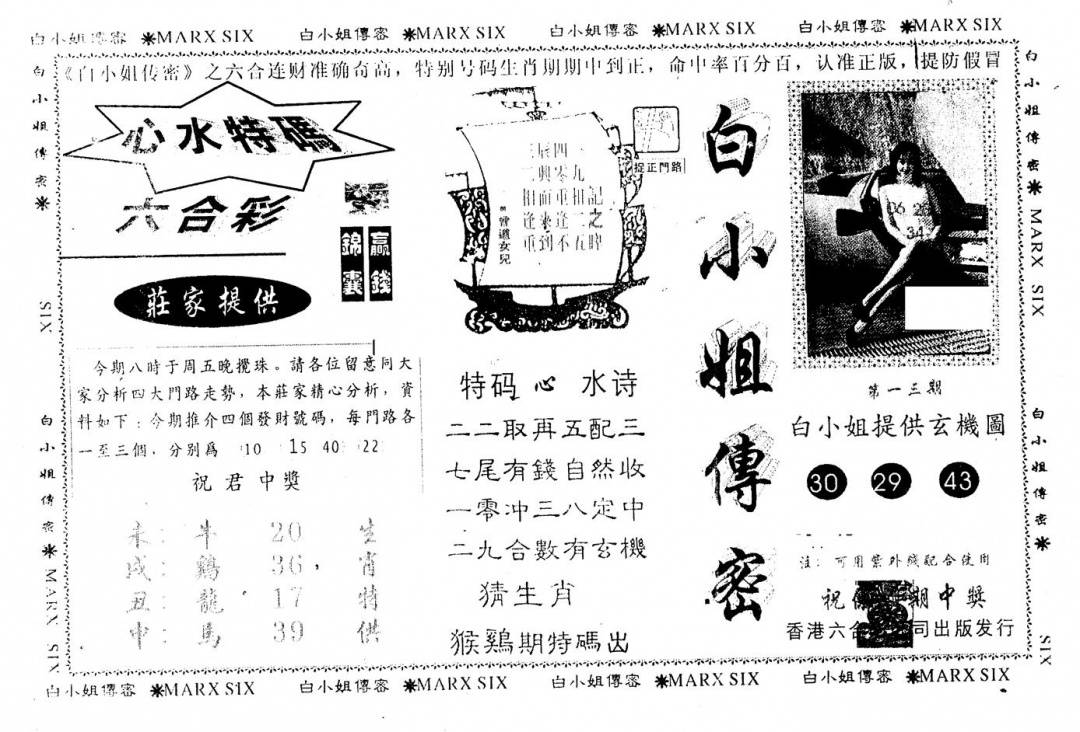 白小姐傳密 ✱MARX SIX 白小姐傳密 ✱MARX SIX 白小姐傳密 ✱MARX SIX 白小姐傳密 ✱MARX SIX
《白小姐传密》之六合连财准确奇高，特别号码生肖期期中到正，命中率百分百，认准正版，提防假冒
心水特碼
六合彩
錦囊
贏錢
莊家提供
今期八時于周五晚攪珠。請各位留意同大
家分析四大門路走勢，本莊家精心分析，資
料如下：今期推介四個發財號碼，每門路各
一至三個，分別爲 10 15 40 22
祝君中獎
未：牛 20 生
戌：鷄 36， 肖
丑：龍 17 特
申：馬 39 供
捉正門路
辰四
二興零九
相而重相記
逢來逢二之
重到不五牌
曾道女兒
特码心水诗
二二取再五配三
七尾有錢自然收
一零冲三八定中
二九合數有玄機
猜生肖
猴鷄期特碼出
白小姐傳密
06 26
34
第一三期
白小姐提供玄機圖
30 29 43
注：可用紫外綫配合使用
祝 期中獎
香港六合 司出版发行
白小姐傳密 ✱ MARX SIX
白小姐傳密 ✱
白小姐傳密 ✱
SIX
白小姐傳密 ✱ MARX SIX
SIX
白小姐傳密 ✱MARX SIX 白小姐傳密 ✱MARX SIX 白小姐傳密 ✱MARX SIX 白小姐傳密 ✱MARX SIX